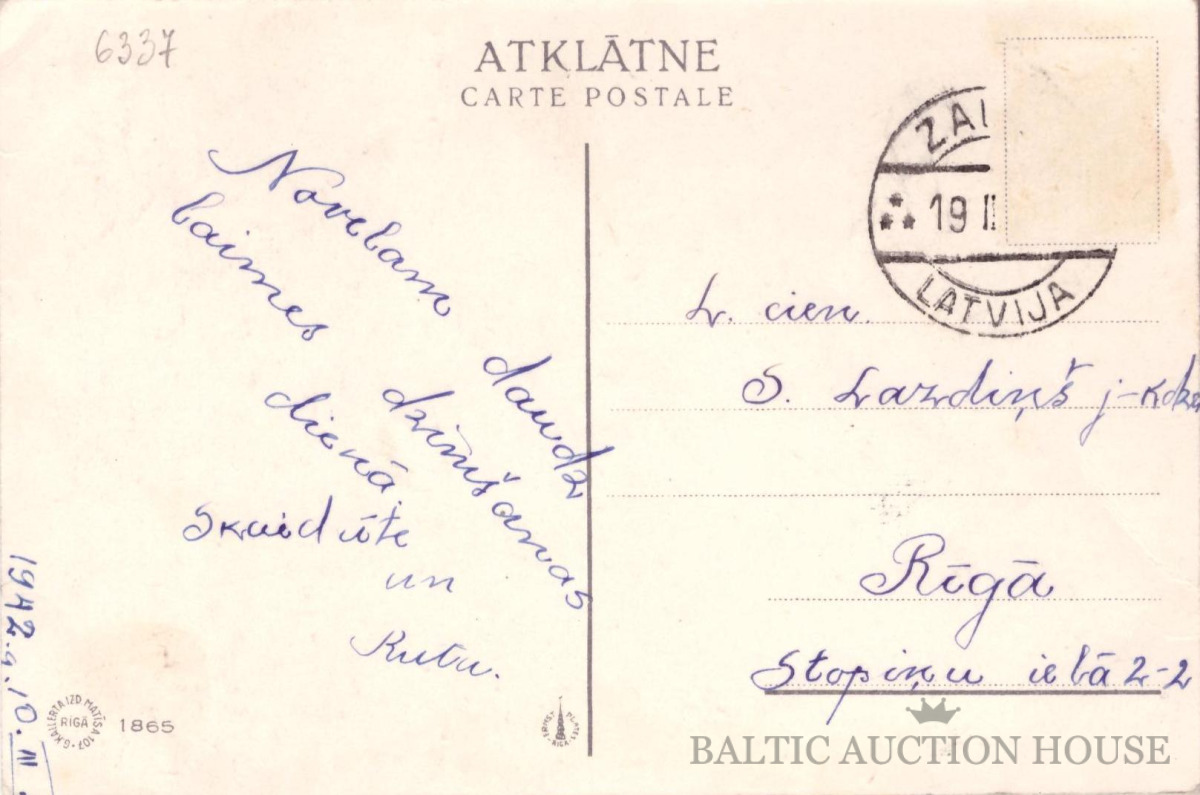 6337
ATKLĀTNE
CARTE POSTALE
ZAL
19 II
LATVIJA
Novelam daudz
laimes dzimšanas
dienā,
Skaidrīte
un
Ruta.
1942.g. 10. III
G.KALLERTA IZD MATĪSA 107
RĪGĀ
1865
ERNST PLATES
RIGA
Lr. cien.
S. Lazdiņš j-kdze
Rīgā
Stopiņu ielā 2-2
BALTIC AUCTION HOUSE